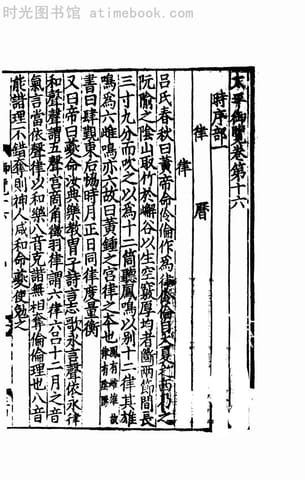 时光图书馆 atimebook.com
太平御覽卷第十六
時序部一
律 曆
律
呂氏春秋曰黄帝命伶倫作為律伶倫自大夏之西乃之
阮隃之陰山取竹於嶰谷以生空竅厚均者斷兩節間長
三寸九分而吹之以為十二筩聽鳳鳴以别十二律其雄
鳴為六雌鳴亦六故曰黄鍾之宫律之本也
鳳有雄雌故
律有陰陽
書曰肆覲東后協時月正日同律度量衡
又曰帝曰夔命汝典樂教胄子詩言志歌永言聲依永律
和聲聲謂五聲宫商角徵羽律謂六律六吕十二月之音
氣言當依聲律以和樂八音克諧無相奪倫倫理也八音
能諧理不錯奪則神人咸和命夔使勉之